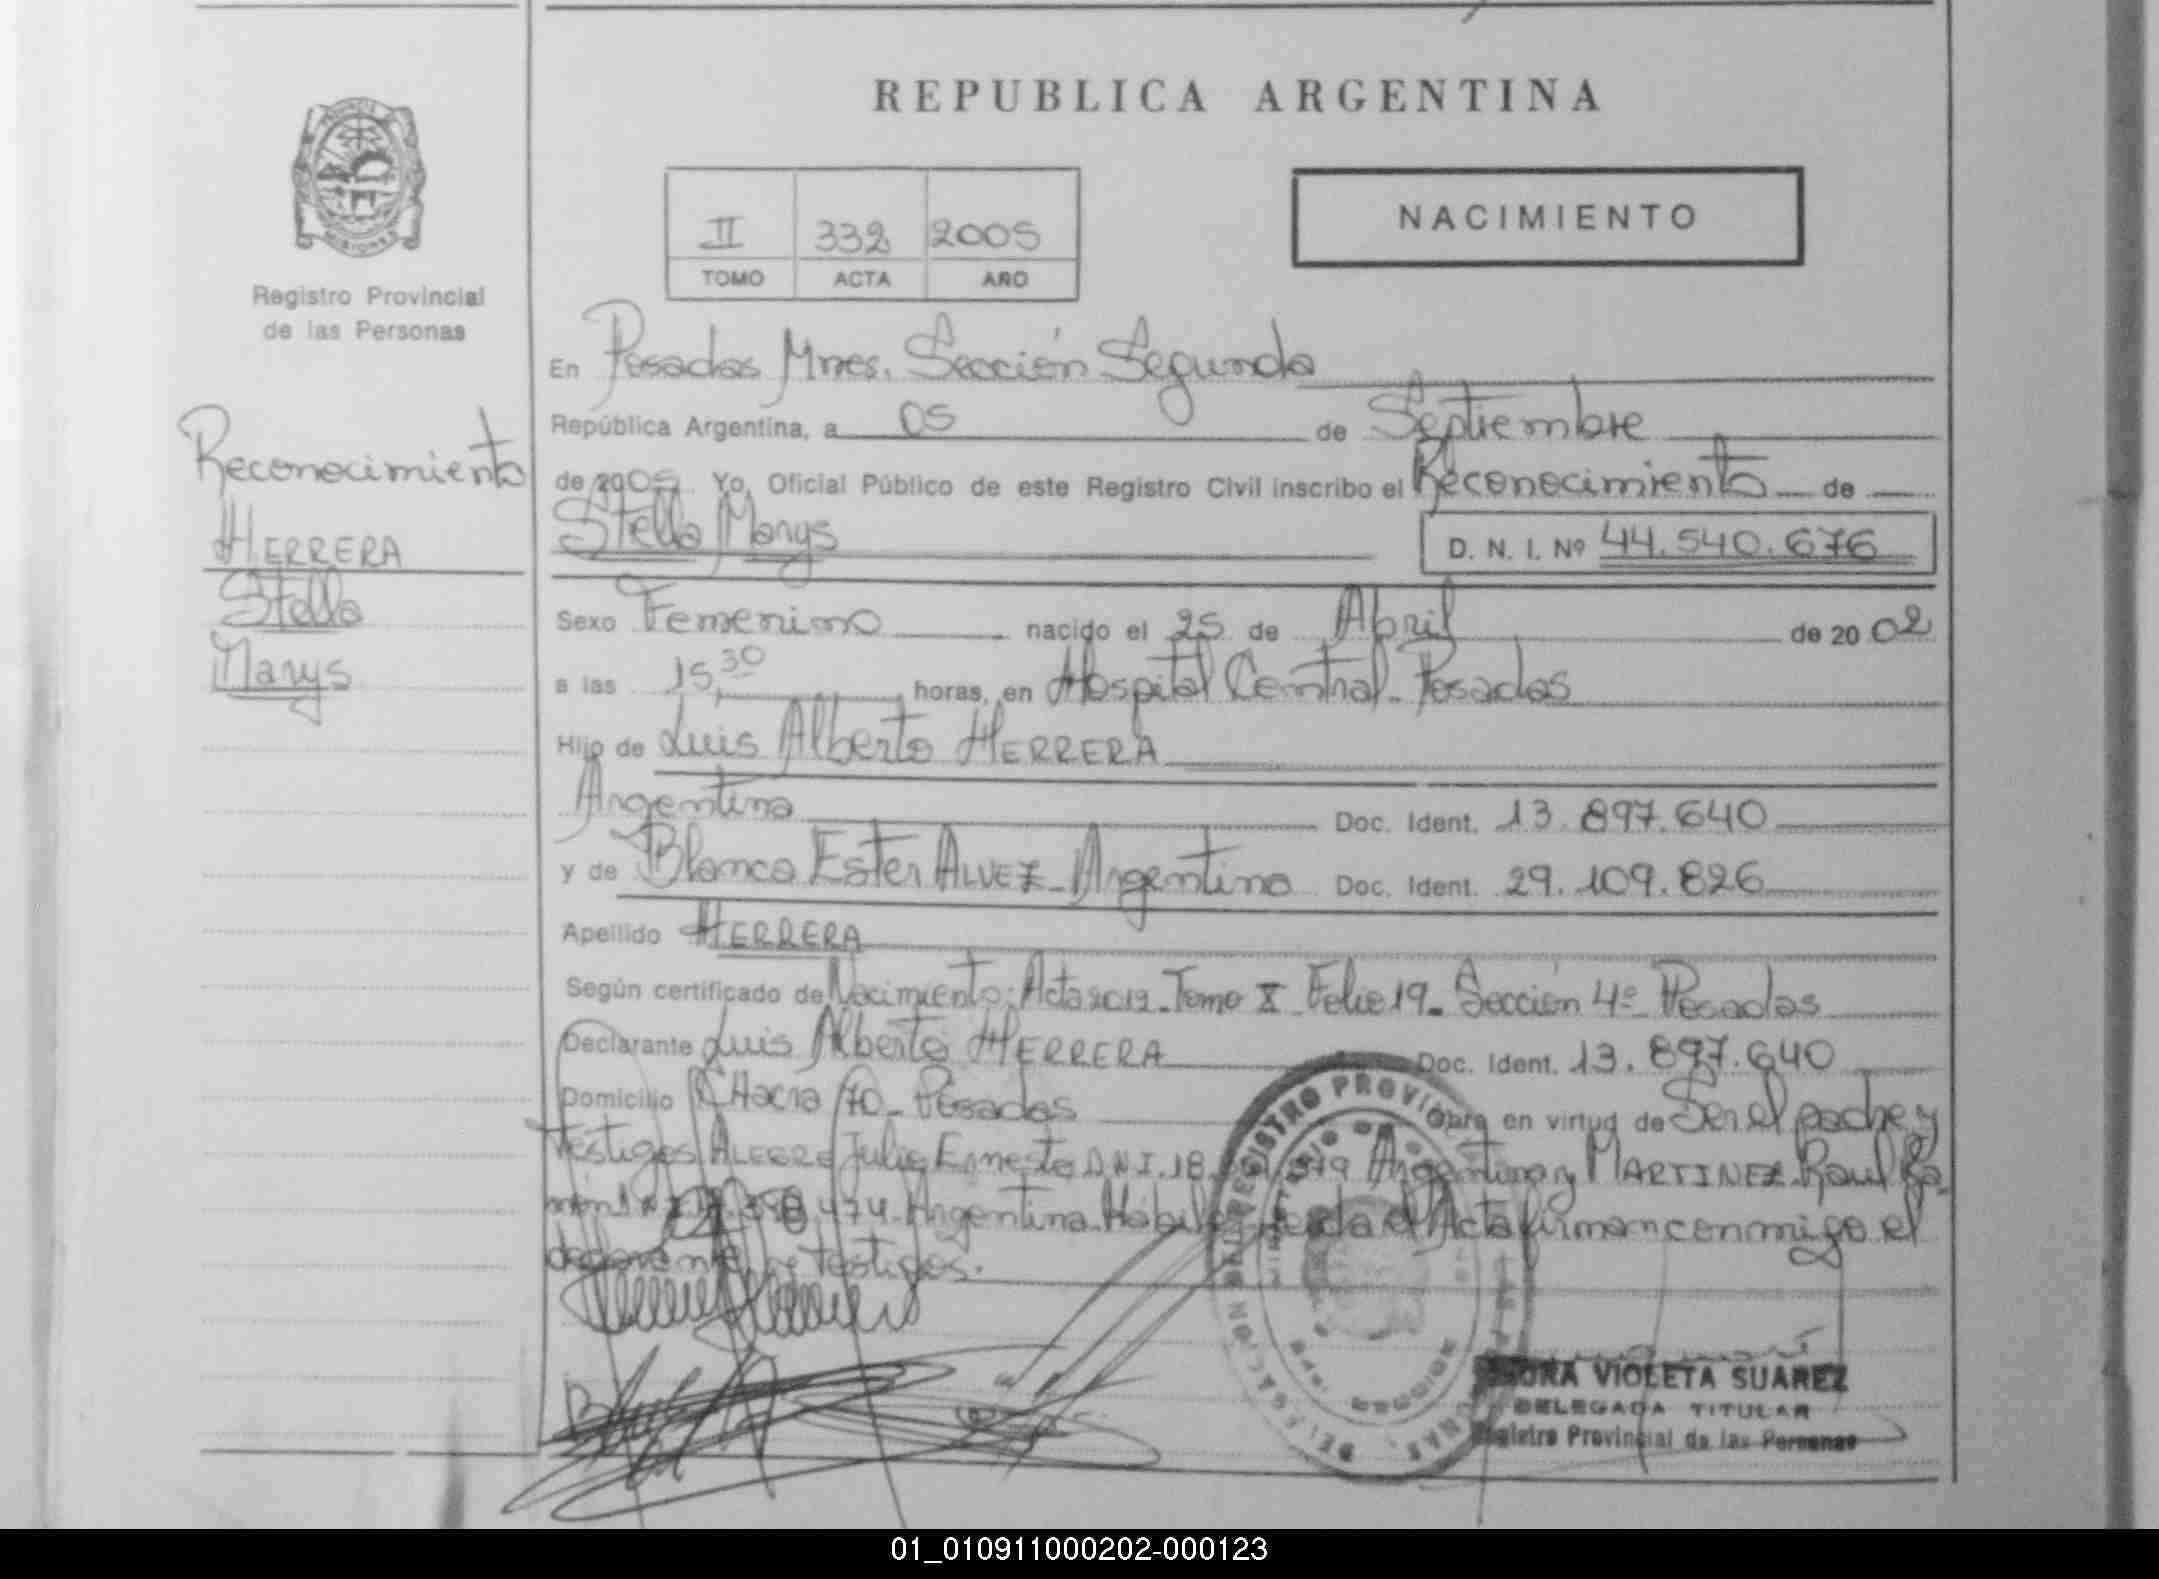 REPUBLICA ARGENTINA
NACIMIENTO
II 332 2005
TOMO ACTA AÑO
Registro Provincial
de las Personas
Reconocimiento
HERRERA
Stella
Marys
En Posadas Mnes. Sección Segunda
República Argentina, a 05 de Septiembre
de 2005 Yo, Oficial Público de este Registro Civil inscribo el Reconocimiento de
Stella Marys D. N. I. Nº 44.540.676
Sexo Femenino nacido el 25 de Abril de 2002
a las 15,30 horas, en Hospital Central - Posadas
Hijo de Luis Alberto HERRERA
Argentina Doc. Ident. 13.897.640
y de Blanca Ester ALVEZ - Argentina Doc. Ident. 29.109.826
Apellido HERRERA
Según certificado de Nacimiento: Acta 2012 - Tomo X Folio 19 - Sección 4º Posadas
Declarante Luis Alberto HERRERA Doc. Ident. 13.897.640
Domicilio CHacra 70 - Posadas Obra en virtud de Ser el padre y
testigos ALEGRE Julio Ernesto D.N.I. 18. Argentina y MARTINEZ Raul Ra-
món 474 - Argentina Habil el Acta firman conmigo el
testigos.
DELEGACION DEL REGISTRO PROVINCIAL
MINISTERIO DE
VIOLETA SUAREZ
DELEGADA TITULAR
Registro Provincial de las Personas
01_010911000202-000123